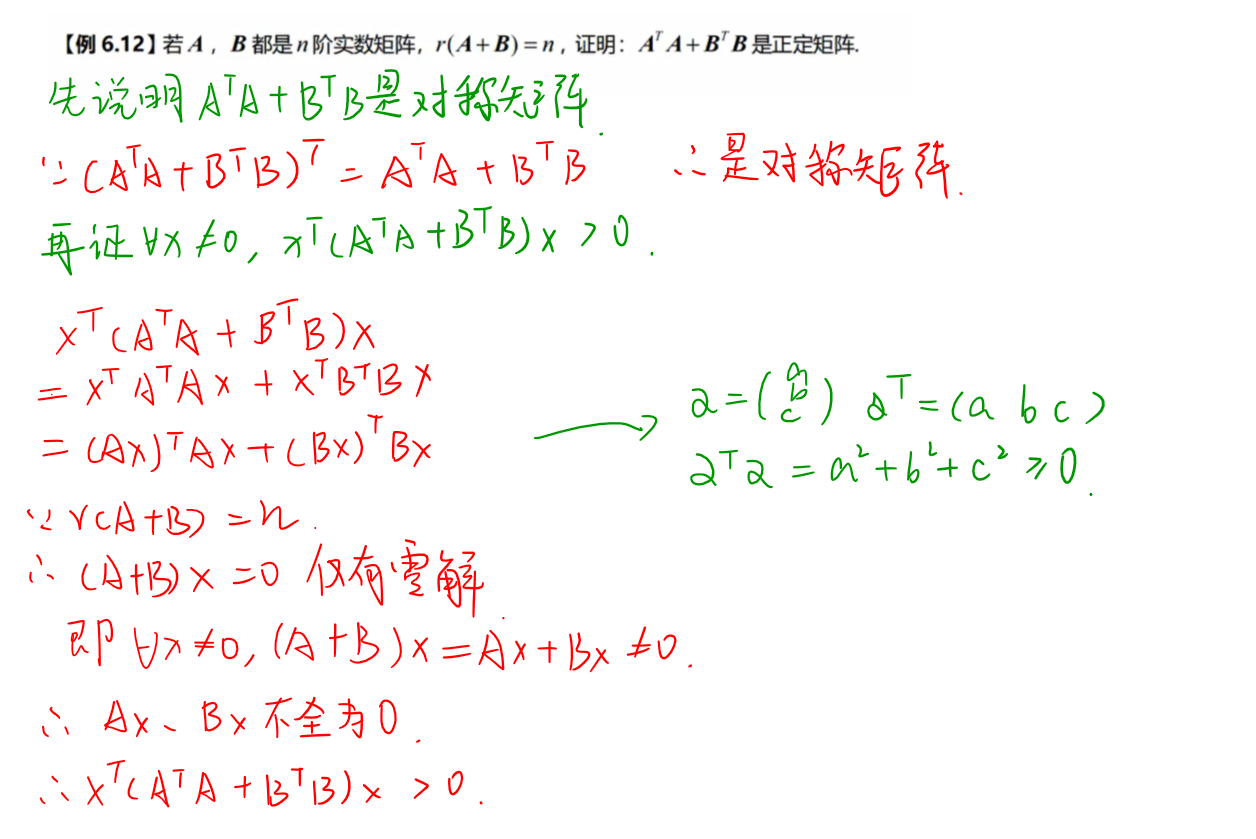 【例 6.12】若 A，B 都是 n 阶实数矩阵，r(A+B)=n，证明：AᵀA+BᵀB 是正定矩阵.
先说明 AᵀA+BᵀB是对称矩阵.
∵ (AᵀA+BᵀB)ᵀ = AᵀA+BᵀB ∴是对称矩阵.
再证 ∀x≠0, xᵀ(AᵀA+BᵀB)x >0.
xᵀ(AᵀA+BᵀB)x
= xᵀAᵀAx + xᵀBᵀBx
= (Ax)ᵀAx+(Bx)ᵀBx
→ α=(a b c) αᵀ=(a b c)
αᵀα = a²+b²+c² ⩾0.
∵ r(A+B) =n.
∴ (A+B)x =0 仅有零解.
即 ∀x≠0, (A+B)x=Ax+Bx ≠0.
∴ Ax、Bx 不全为0.
∴ xᵀ(AᵀA+BᵀB)x >0.